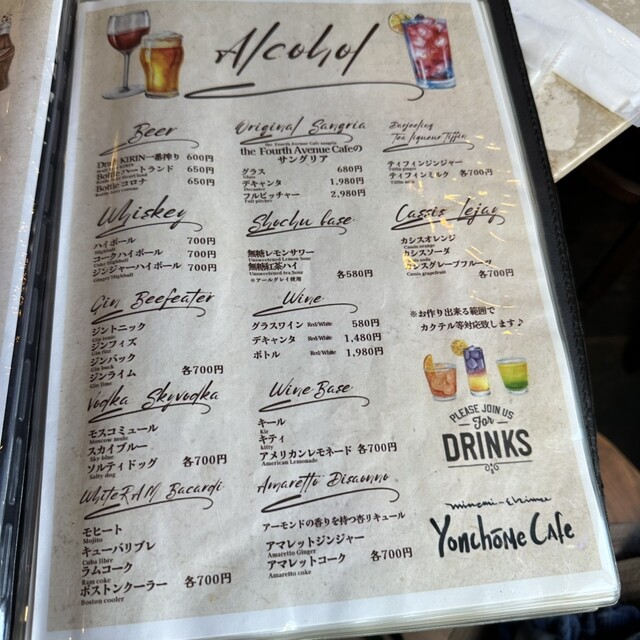 Alcohol
Beer
Draft KIRIN一番搾り 600円
Bottle ハートランド 650円
Bottle コロナ 650円
Whiskey
ハイボール 700円
Highball
コークハイボール 700円
ジンジャーハイボール 700円
Ginger Highball
Gin Beefeater
ジントニック
Gin tonic
ジンフィズ
Gin fizz
ジンバック
Gin buck
ジンライム 各700円
Gin lime
Vodka Skyvodka
モスコミュール
Moscow mule
スカイブルー
Sky blue
ソルティドッグ 各700円
Salty dog
White RAM Bacardi
モヒート
Mojito
キューバリブレ
Cuba libre
ラムコーク
Ram coke
ボストンクーラー 各700円
Boston cooler
Original Sangria
the Fourth Avenue Cafe sangria
the Fourth Avenue Cafeの
サングリア
グラス 680円
Glass
デキャンタ 1,980円
Decanter
フルピッチャー 2,980円
Full pitcher
Shochu base
無糖レモンサワー
Unsweetened Lemon Sour
無糖紅茶ハイ 各580円
Unsweetened tea Sour
※アールグレイ使用
Wine
グラスワイン Red/White 580円
デキャンタ Red/White 1,480円
ボトル Red/White 1,980円
Wine Base
キール
Kir
キティ
kitty
アメリカンレモネード 各700円
American Lemonade
Amaretto Disaonno
アーモンドの香りを持つ杏リキュール
アマレットジンジャー
Amaretto Ginger
アマレットコーク 各700円
Amaretto coke
Darjeeling
Tea liqueur Tiffin
ティフィンジンジャー
Tiffin ginger
ティフィンミルク 各700円
Tiffin milk
Cassis Lejay
カシスオレンジ
Cassis Orange
カシスソーダ
カシスグレープフルーツ
Cassis grapefruit
各700円
※お作り出来る範囲で
カクテル等対応致します♪
PLEASE JOIN US
For
DRINKS
minami-ehime
Yonchōme Cafe